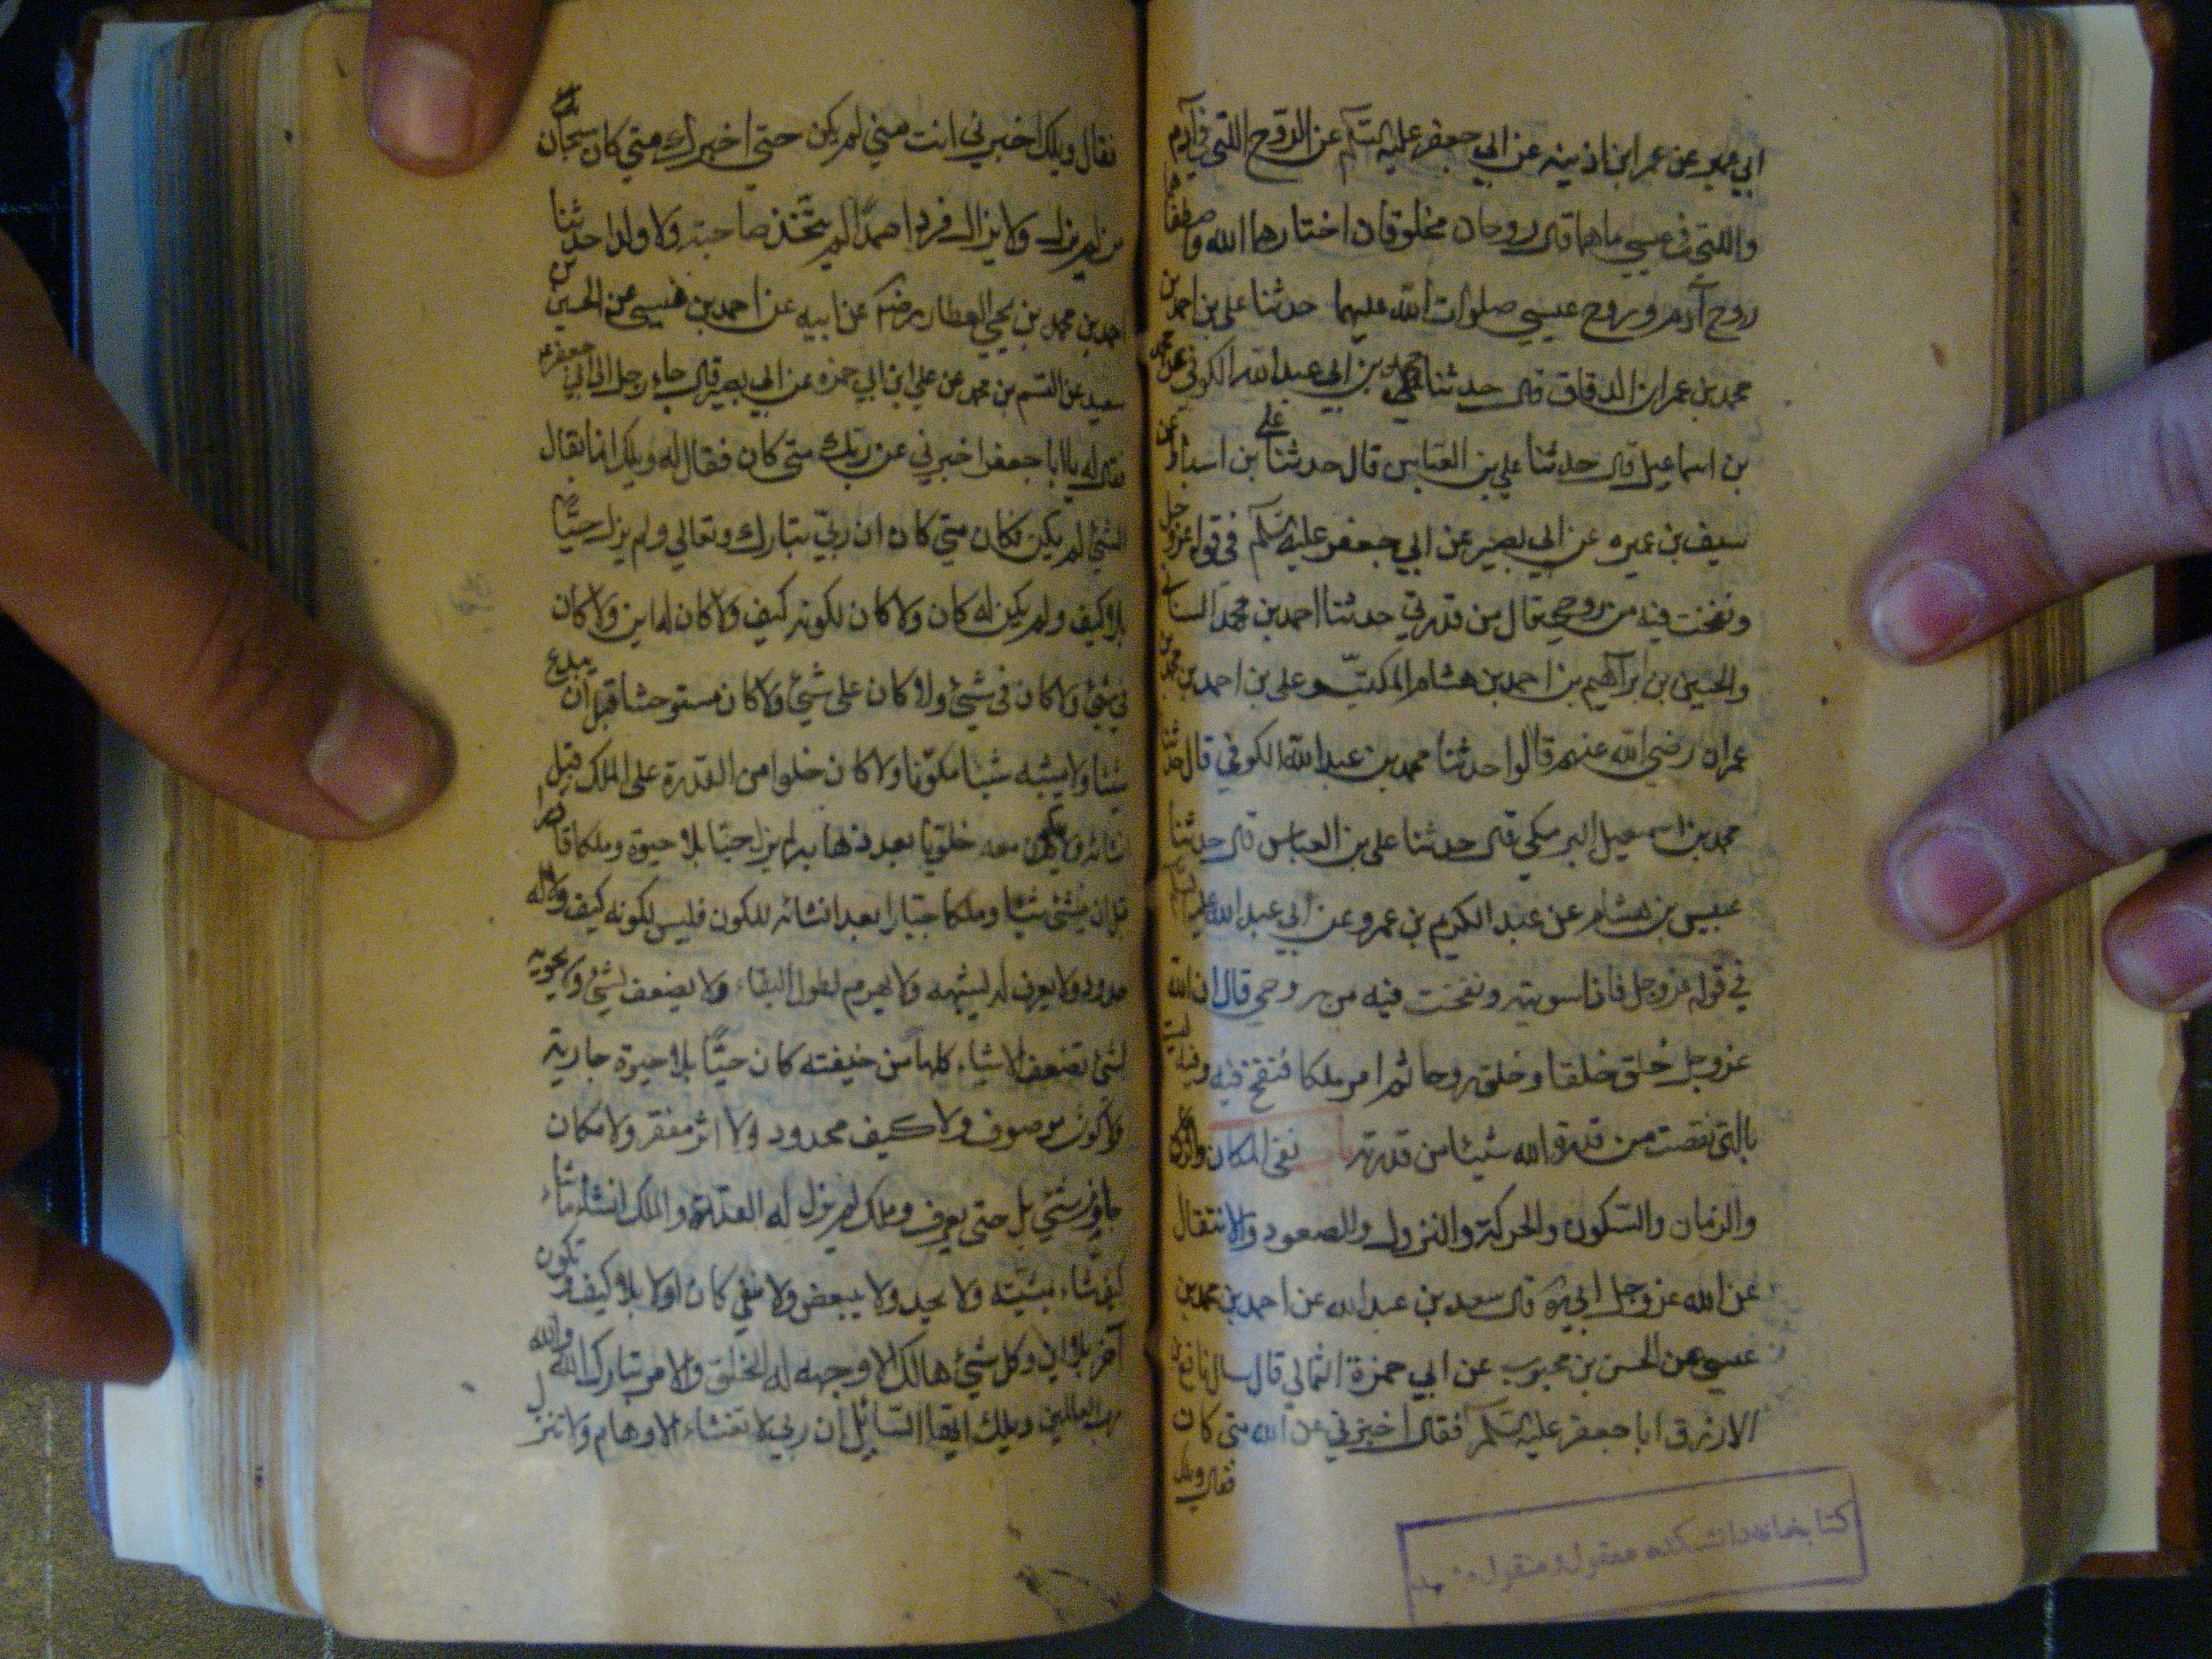 ابي عمير عن عمر ابن اذينه عن ابي جعفر عليه السلم عن الروح اللتي في آدم
واللتي في عيسي ما هما قال روحان مخلوقان اختارهما الله واصطفاهما
روح آدم و روح عيسي صلوات الله عليهما حدثنا علي بن احمد بن
محمد بن عمران الدقاق قال حدثنا محمد بن ابي عبد الله الكوفي عن محمد
بن اسماعيل قال حدثنا علي بن العباس قال حدثنا علي بن اسباط عن
سيف بن عميره عن ابي بصير عن ابي جعفر عليه السلم في قوله عز و جل
و نفخت فيه من روحي قال من قدرتي حدثنا احمد بن محمد السناني
والحسين بن ابراهيم بن احمد بن هشام المكتب و علي بن احمد بن محمد بن
عمران رضي الله عنهم قالوا حدثنا محمد بن عبد الله الكوفي قال حدثنا
محمد بن اسمعيل البرمكي قال حدثنا علي بن العباس قال حدثنا
عبيس بن هشام عن عبد الكريم بن عمرو عن ابي عبد الله عليه السلم
في قوله عز و جل فاذا سويته و نفخت فيه من روحي قال ان الله
عز و جل خلق خلقا و خلق روحا ثم امر ملكا فنفخ فيه وليست
بالتي نقصت من قدرة الله شيئا من قدرته باب نفي المكان
والزمان والسكون والحركة والنزول والصعود والانتقال
عن الله عز و جل ابي ره قال سعد بن عبد الله عن احمد بن محمد بن
عيسي عن الحسن بن محبوب عن ابي حمزة الثمالي قال سال نافع بن
الازرق ابا جعفر عليه السلم فقال اخبرني عن الله متي كان
فقال ويلك
كتابخانه دانشكده معقول و منقول مشهد
فقال ويلك اخبرني انت متي لم يكن حتي اخبرك متي كان سبحان
من لم يزل ولا يزال فردا صمدا لم يتخذ صاحبة ولا ولدا حدثنا
احمد بن محمد بن يحيي العطار رضي عن ابيه عن احمد بن عيسي عن الحسين بن
سعيد عن القسم بن محمد عن علي ابن ابي حمزه عن ابي بصير قال جاء رجل الي ابي جعفر ع
فقال له يا ابا جعفر اخبرني عن ربك متي كان فقال له ويلك انما يقال
لشئ لم يكن فكان متي كان ان ربي تبارك و تعالي و لم يزل حيا
بلا كيف و لم يكن له كان ولا كان لكونه كيف ولا كان له اين ولا كان
في شئ ولا كان في شئ ولا كان علي شئ ولا كان مستوحشا قبل ان يبدع
شيئا ولا يشبه شيئا مكونا ولا كان خلوا من القدرة علي الملك قبل
انشائه ولا يكون معه خلوتا بعد ذهابه لم يزل حيا بلا حيوة و ملكا قادرا
قبل ان ينشئ شيئا و ملكا جبارا بعد انشائه للكون فليس لكونه كيف ولا له
حد ولا يعرف له بشبهه ولا يهرم لطول البقاء ولا يضعف لشئ
لشئ تضعف الاشياء كلها من خيفته كان حيا بلا حيوة جارية
ولا كون موصوف ولا كيف محدود ولا اثر مقفر ولا مكان
جاور شئ بل حتي يعرف و ملك لم يزل له القدرة والملك انشاء ما شاء
كيف شاء بمشيته ولا يحد ولا يبعض ولا يفني كان اولا بلا كيف و يكون
آخر بلا اين و كل شئ هالك الا وجهه له الخلق والامر تبارك الله والله
رب العالمين ويلك ايها السائل ان ربي لا تغشاه الاوهام ولا تنزل